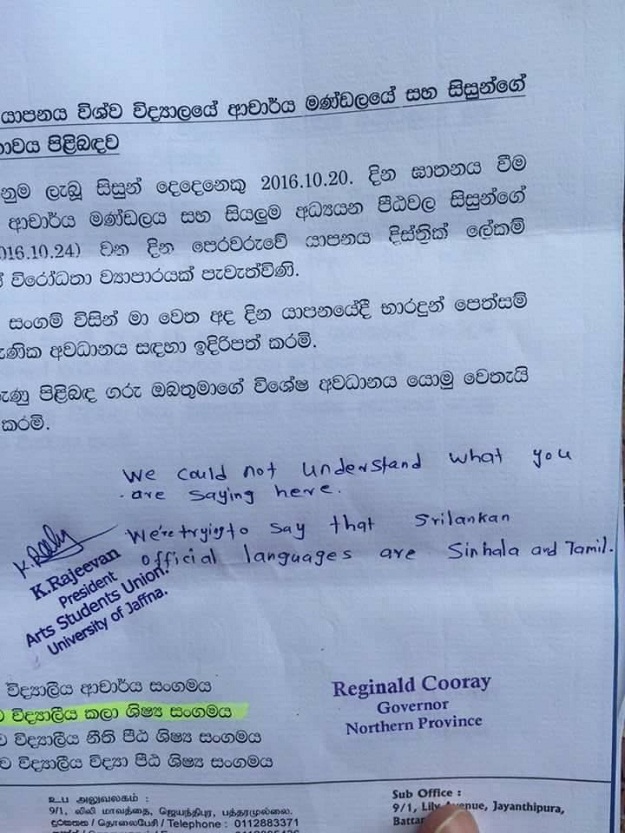 යාපනය විශ්ව විද්‍යාලයේ ආචාර්ය මණ්ඩලයේ සහ සිසුන්ගේ
පිළිබඳව
ලැබූ සිසුන් දෙදෙනෙකු 2016.10.20. දින ඝාතනය වීම
ආචාර්ය මණ්ඩලය සහ සියලුම අධ්‍යයන පීඨවල සිසුන්ගේ
016.10.24) වන දින පෙරවරුවේ යාපනය දිස්ත්‍රික් ලේකම්
විරෝධතා ව්‍යාපාරයක් පැවැත්විණි.
සංගම් විසින් මා වෙත අද දින යාපනයේදී භාරදුන් පෙත්සම්
අවධානය සඳහා ඉදිරිපත් කරමි.
පිළිබඳ ගරු ඔබතුමාගේ විශේෂ අවධානය යොමු වෙතැයි
කරමි.
We could not understand what you
are saying here.
We're trying to say that Srilankan
official languages are Sinhala and Tamil.
K.Rajeevan
President
Arts Students Union.
University of Jaffna.
විද්‍යාලීය ආචාර්ය සංගමය
විද්‍යාලීය කලා ශිෂ්‍ය සංගමය
විද්‍යාලීය නීති පීඨ ශිෂ්‍ය සංගමය
විද්‍යාලීය විද්‍යා පීඨ ශිෂ්‍ය සංගමය
Reginald Cooray
Governor
Northern Province
உப அலுவலகம் :
9/1, லிலி மாவத்தை, ஜெயந்திபுர, பத்தரமுல்லை.
දුරකතන / தொலைபேசி / Telephone : 0112883371
Sub Office :
9/1, Lily Avenue, Jayanthipura,